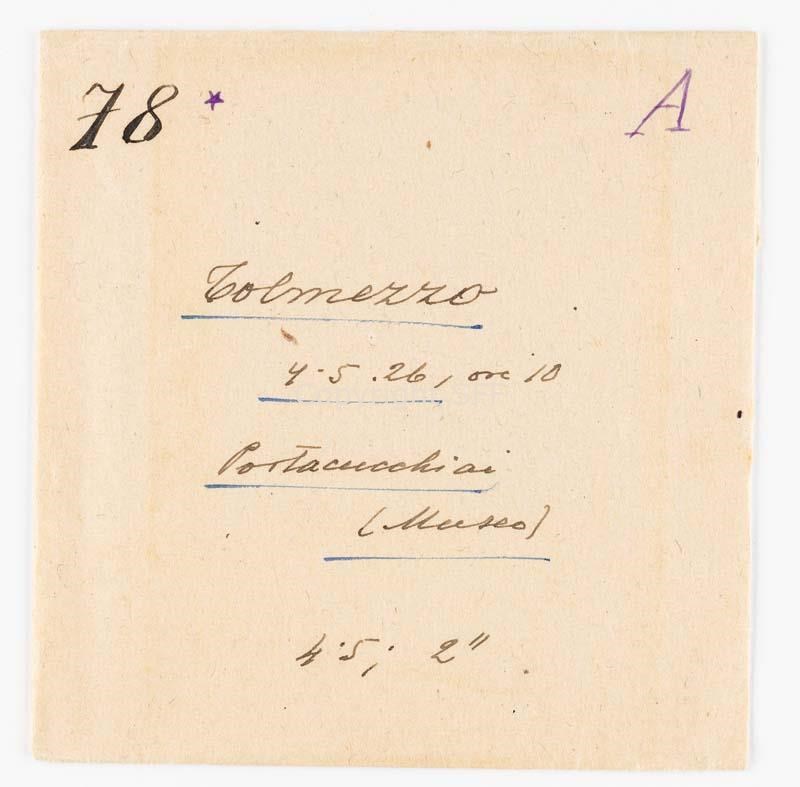 78* A
Tolmezzo
4.5.26, ore 10
Portacucchiai
(Museo)
4.5; 2"